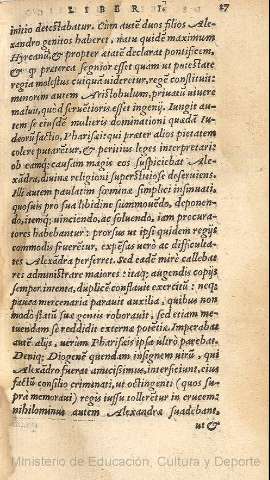 LIBER I.
87
initio detestabatur. Cum autē duos filios Ale-
xandro genitos haberet, natu quidē maximum
Hyrcanū, & propter ætatē declarat pontificem,
& qꝫ præterea segnior esset quam ut potestate
regia molestus cuiquā videretur, regē constituit:
minorem autem Aristobulum, privatū vivere
maluit, quod ferventioris esset ingenij. Iungit au-
tem se eiusdē mulieris dominationi quædā Iu-
dæorū factio, Pharisæi: qui præter alios pietatem
colere putarētur, & peritius leges interpretari:
ob eamqꝫ causam magis eos suspiciebat Ale-
xādra, divinæ religioni superstitiose deserviens.
Illi autem paulatim fœminæ simplici insinuati,
quosvis pro sua libidine summovēdo, deponen-
do, itemqꝫ vinciendo, ac solvendo, iam procura-
tores habebantur: prorsus ut ipsi quidem regijs
commodis fruerētur, expēsas vero ac difficulta-
tes Alexādra perferret. Sed eadē mirè callebat
res administrare maiores: itaqꝫ augendis copijs
semper intenta, duplicē conflavit exercitū: neqꝫ
pauca mercenaria paravit auxilia, quibus non
modò statū suæ gentis roboravit, sed etiam me-
tuendam se reddidit externæ potētiæ. Imperabat
autē alijs, verùm Pharisæis ipsa ultrò parebat.
Deniqꝫ Diogenē quendam insignem virū, qui
Alexādro fuerat amicissimus, interficiunt, eius
factū consilio criminati, ut octingenti (quos su-
prà memoravi) regis iussu tollerētur in crucem:
nihilominus autem Alexandræ suadebant,
ut &
Ministerio de Educación, Cultura y Deporte